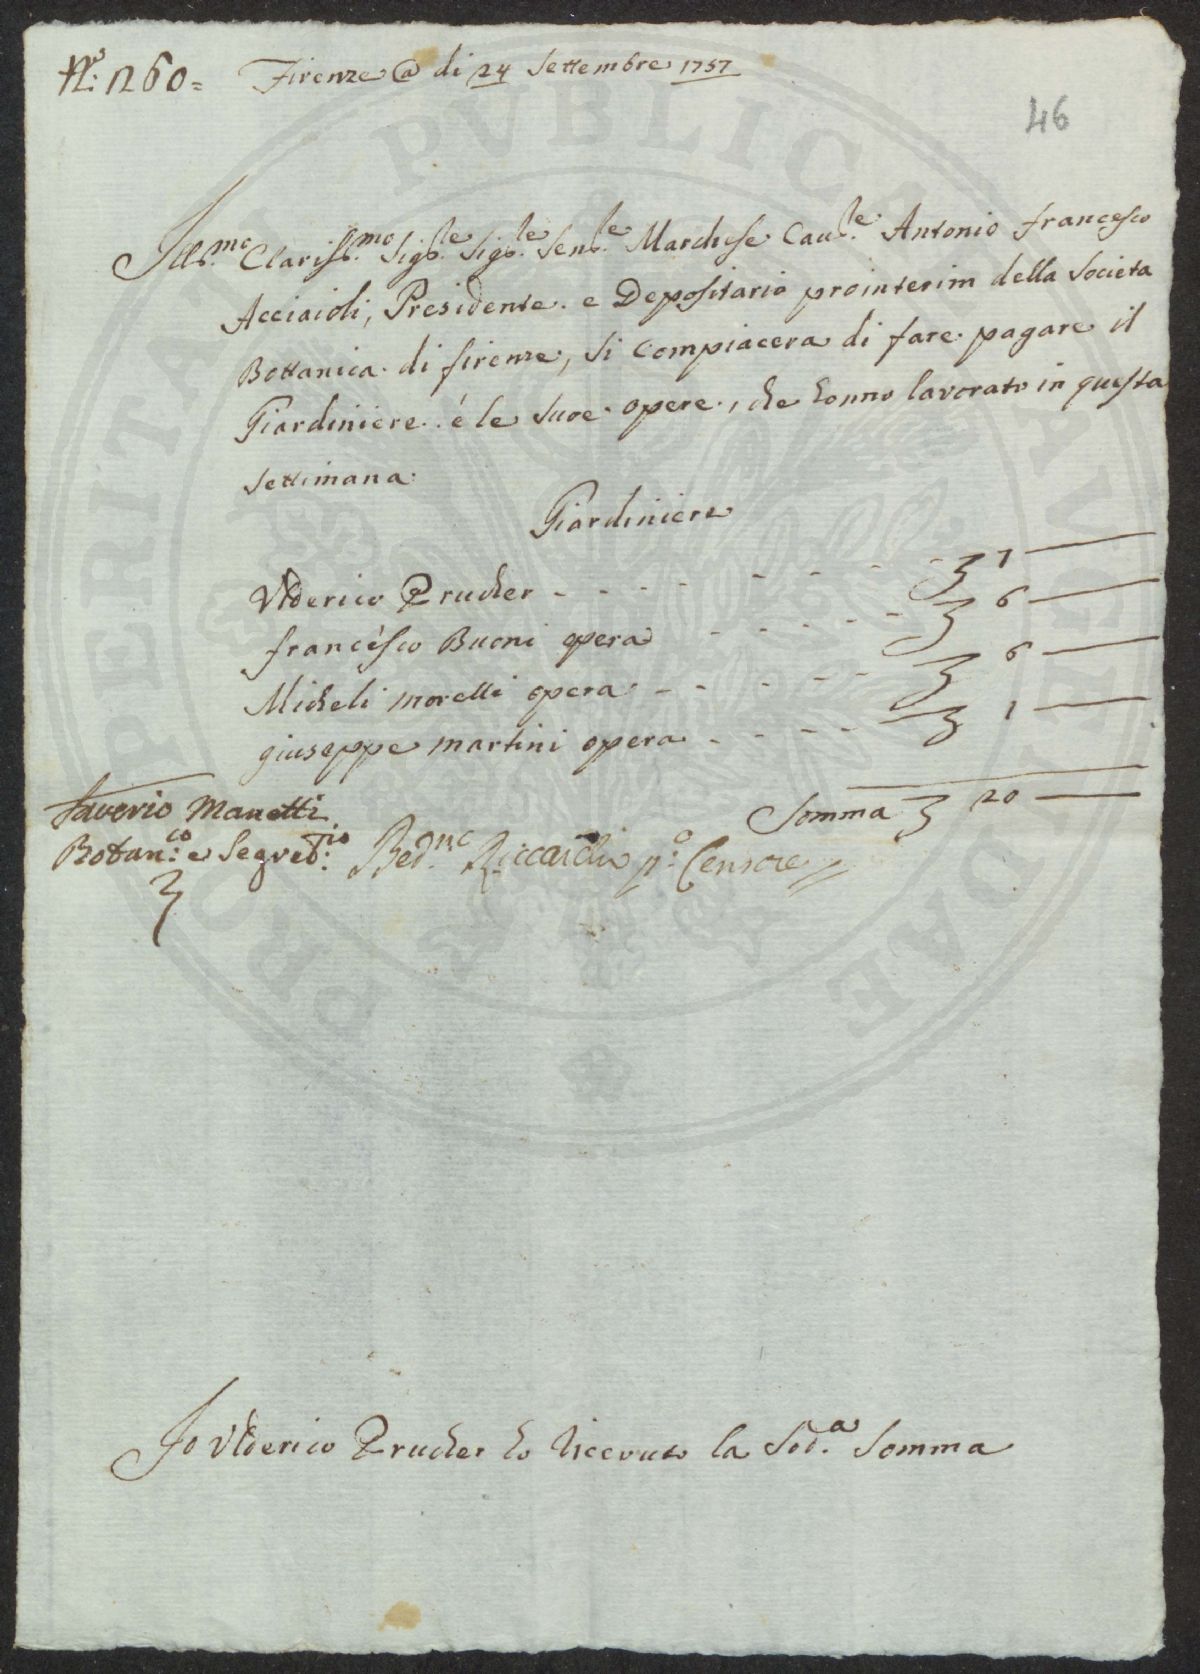 N.º 1260 = Firenze @ di 24 Settembre 1757
46
Ill.mo Clariss.mo Sig.le Sig.le Sen.le Marchese Cau.le Antonio francesco
Acciaioli, Presidente e Depositario prointerim della Societa
Bottanica di firenze, Si Compiacera di fare pagare il
Giardiniere é le Sue opere, che honno lavorato in questa
Settimana
Giardiniere
Vlderico Prucher - - - - - - - - 7 —
francesco Buoni opera - - - - - 6 —
Micheli morelli opera - - - - - 6 —
giuseppe martini opera - - - - 1 —
Somma 20 —
Saverio Manetti
Botan.co e Segret.rio
Riccardi p.º Censore
Jo Vlderico Prucher ho Riceuuto la Sod.a Somma
PROPRIETATI PVBLICAE AVGENDAE